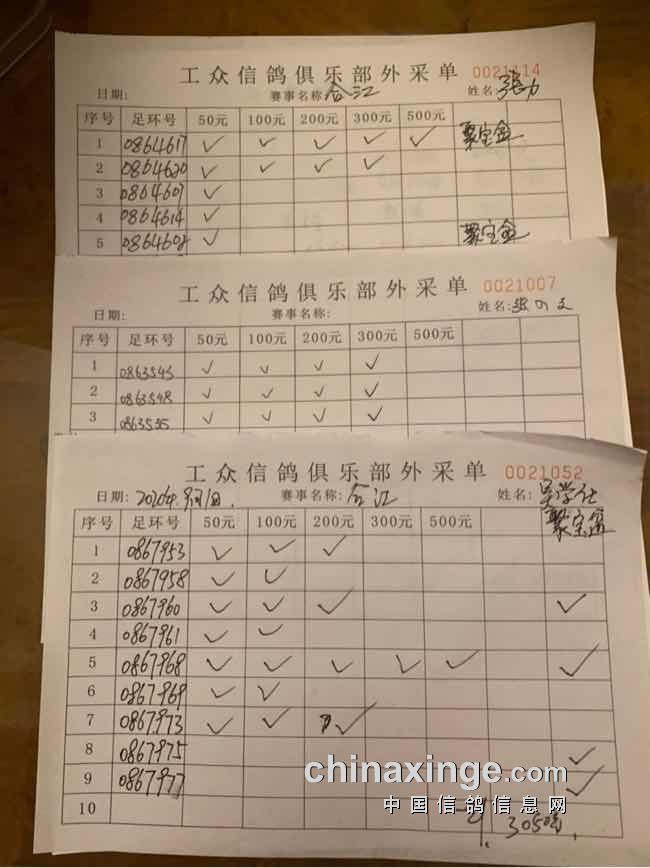 工众信鸽俱乐部外采单 0021114
日期: 赛事名称:合江 姓名:张力
序号 足环号 50元 100元 200元 300元 500元 聚宝盆
1 0864617 ✓ ✓ ✓ ✓ ✓
2 0864620 ✓ ✓ ✓ ✓
3 0864609 ✓
4 0864614 ✓
5 0864602 ✓ 聚宝盆
工众信鸽俱乐部外采单 0021007
日期: 赛事名称: 姓名:
序号 足环号 50元 100元 200元 300元 500元
1 0863543 ✓ ✓ ✓ ✓
2 0863548 ✓ ✓ ✓ ✓
3 0863535 ✓ ✓ ✓ ✓
工众信鸽俱乐部外采单 0021052
日期:2020年 赛事名称:合江 姓名:吴学仕
序号 足环号 50元 100元 200元 300元 500元 聚宝盆
1 0867953 ✓ ✓ ✓
2 0867958 ✓ ✓
3 0867960 ✓ ✓ ✓ ✓
4 0867961 ✓ ✓
5 0867968 ✓ ✓ ✓ ✓ ✓ ✓
6 0867969 ✓ ✓
7 0867973 ✓ ✓ ✓
8 0867975 ✓
9 0867977 ✓
10
chinaxinge.com
中国信鸽信息网